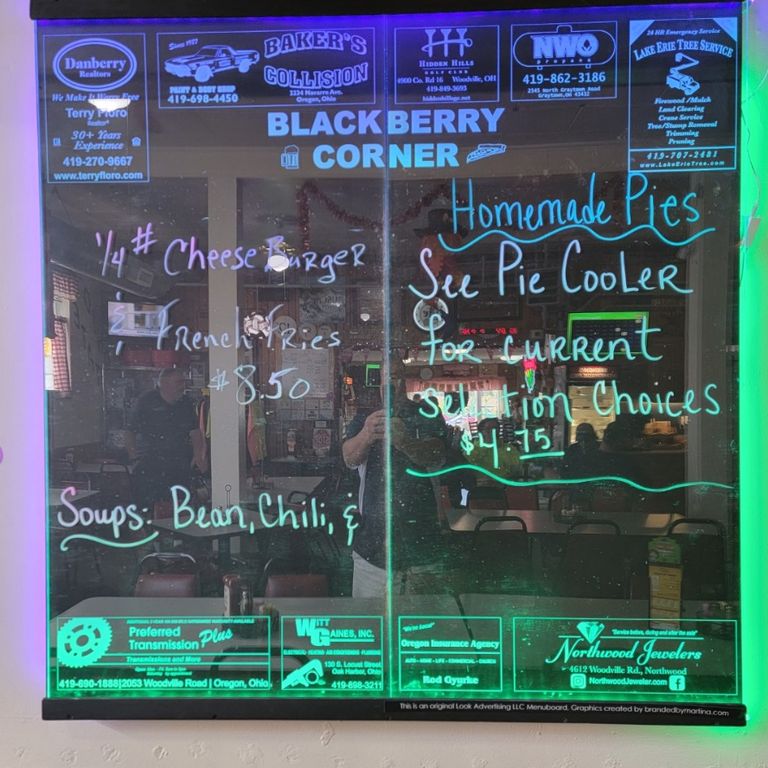 Danberry
Realtors
We Make It Worry Free
Terry Floro
Realtor®
30+ Years
Experience
419-270-9667
www.terryfloro.com
Since 1987
BAKER'S
COLLISION
PAINT & BODY SHOP
419-698-4450
3224 Navarre Ave.
Oregon, Ohio
HIDDEN HILLS
GOLF CLUB
4900 Co. Rd 16 Woodville, OH
419-849-3693
hiddenhillsgc.net
NWO
propane
419-862-3186
2545 North Graytown Road
Graytown,OH 43432
24 HR Emergency Service
LAKE ERIE TREE SERVICE
Firewood/Mulch
Land Clearing
Crane Service
Tree/Stump Removal
Trimming
Pruning
419-707-2481
www.LakeErieTree.com
BLACKBERRY
CORNER
1/4 # Cheese Burger
&
French Fries
$8.50
Soups: Bean, Chili, &
Homemade Pies
See Pie Cooler
for current
selection Choices
$4.75
Preferred
Transmission Plus
Transmissions and More
419-690-1888|2053 Woodville Road | Oregon, Ohio
WITT
GAINES, INC.
ELECTRICAL - HEATING - AIR CONDITIONING - PLUMBING
130 S. Locust Street
Oak Harbor, Ohio
419-898-3211
"We're Local"
Oregon Insurance Agency
AUTO - HOME - LIFE - COMMERCIAL - CHURCH
Rod Gyurke
"Service before, during and after the sale"
Northwood Jewelers
4612 Woodville Rd., Northwood
NorthwoodJeweler.com
This is an original Look Advertising LLC Menuboard. Graphics created by brandedbymartina.com